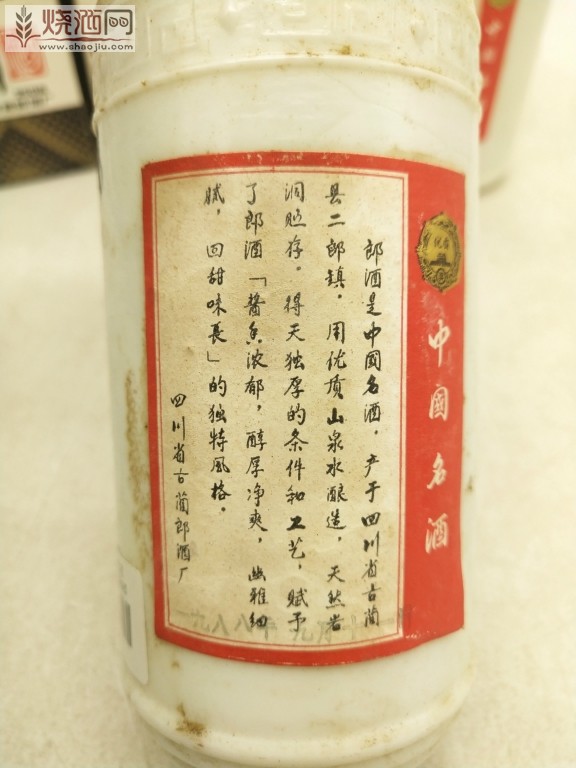 烧酒网
www.shaojiu.com
优质
中國名酒
郎酒是中國名酒，产于四川省古藺
县二郎镇，用优质山泉水酿造，天然岩
洞贮存，得天独厚的条件和工艺，赋予
了郎酒「醬香浓郁，醇厚净爽，幽雅细
腻，回甜味長」的独特风格。
四川省古藺郎酒厂
一九八八年九月